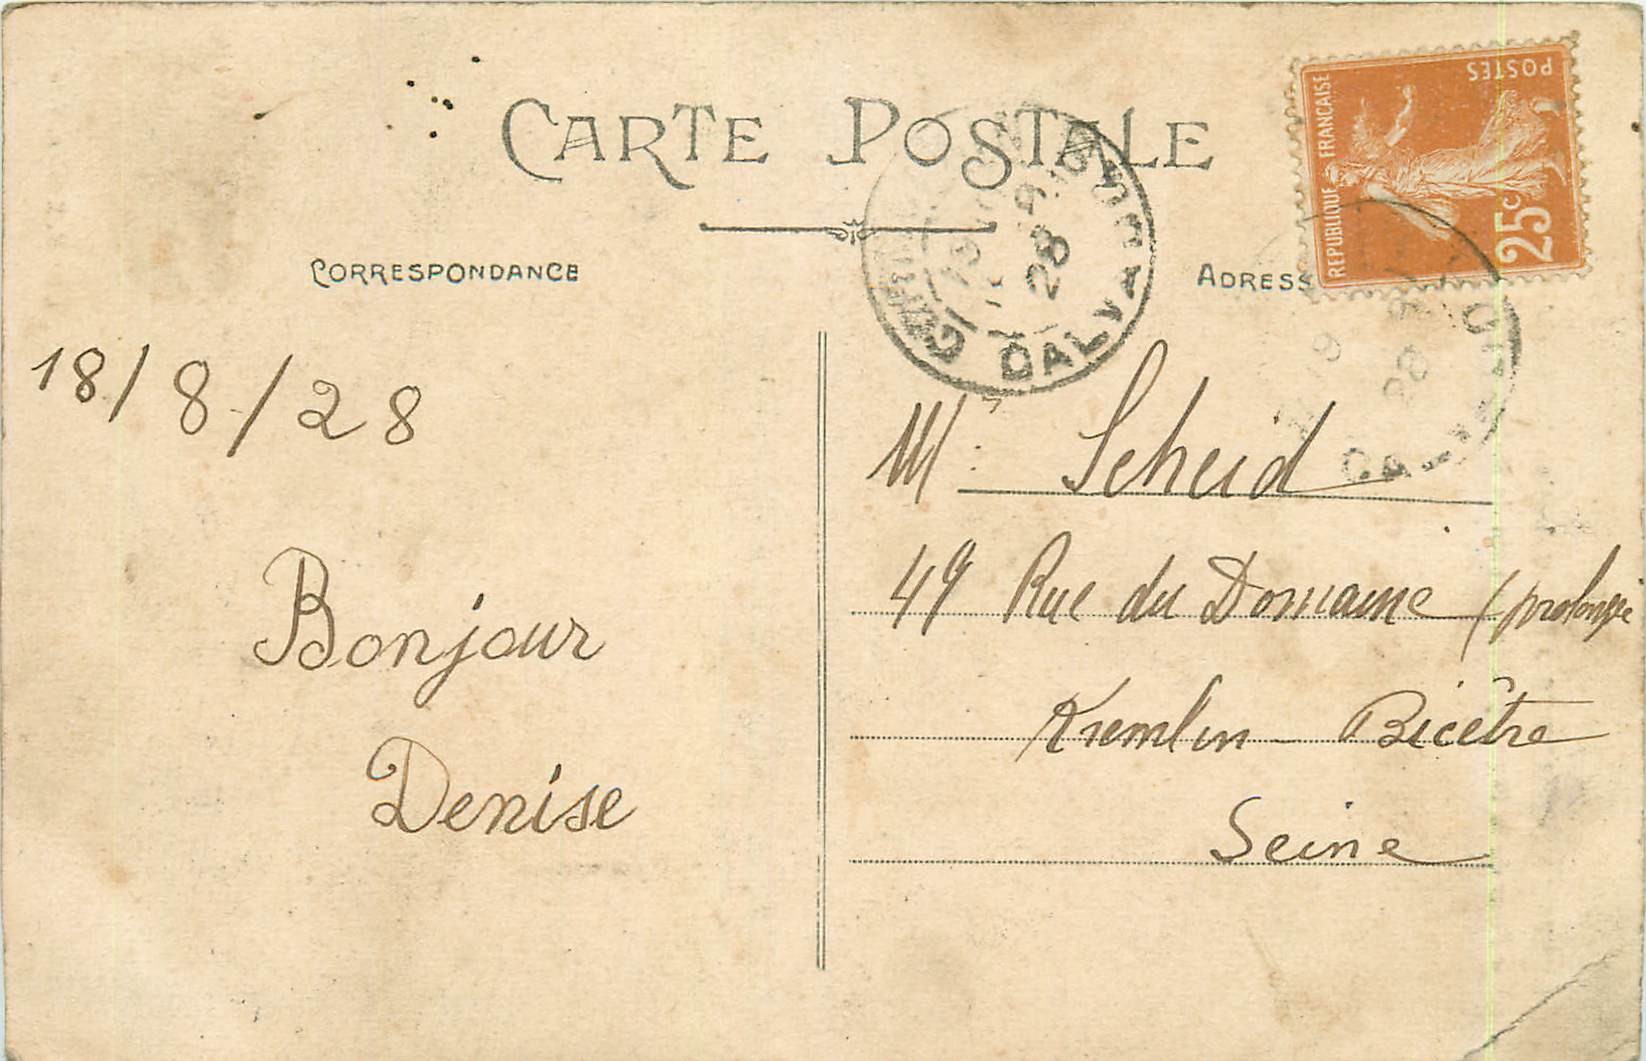 CARTE POSTALE
CORRESPONDANCE
ADRESS
REPUBLIQUE FRANÇAISE
POSTES
25c
28
CALVADOS
18/8/28
Bonjour
Denise
Mr Scheid
49 Rue du Domaine (prolongé
Kremlin-Bicêtre
Seine